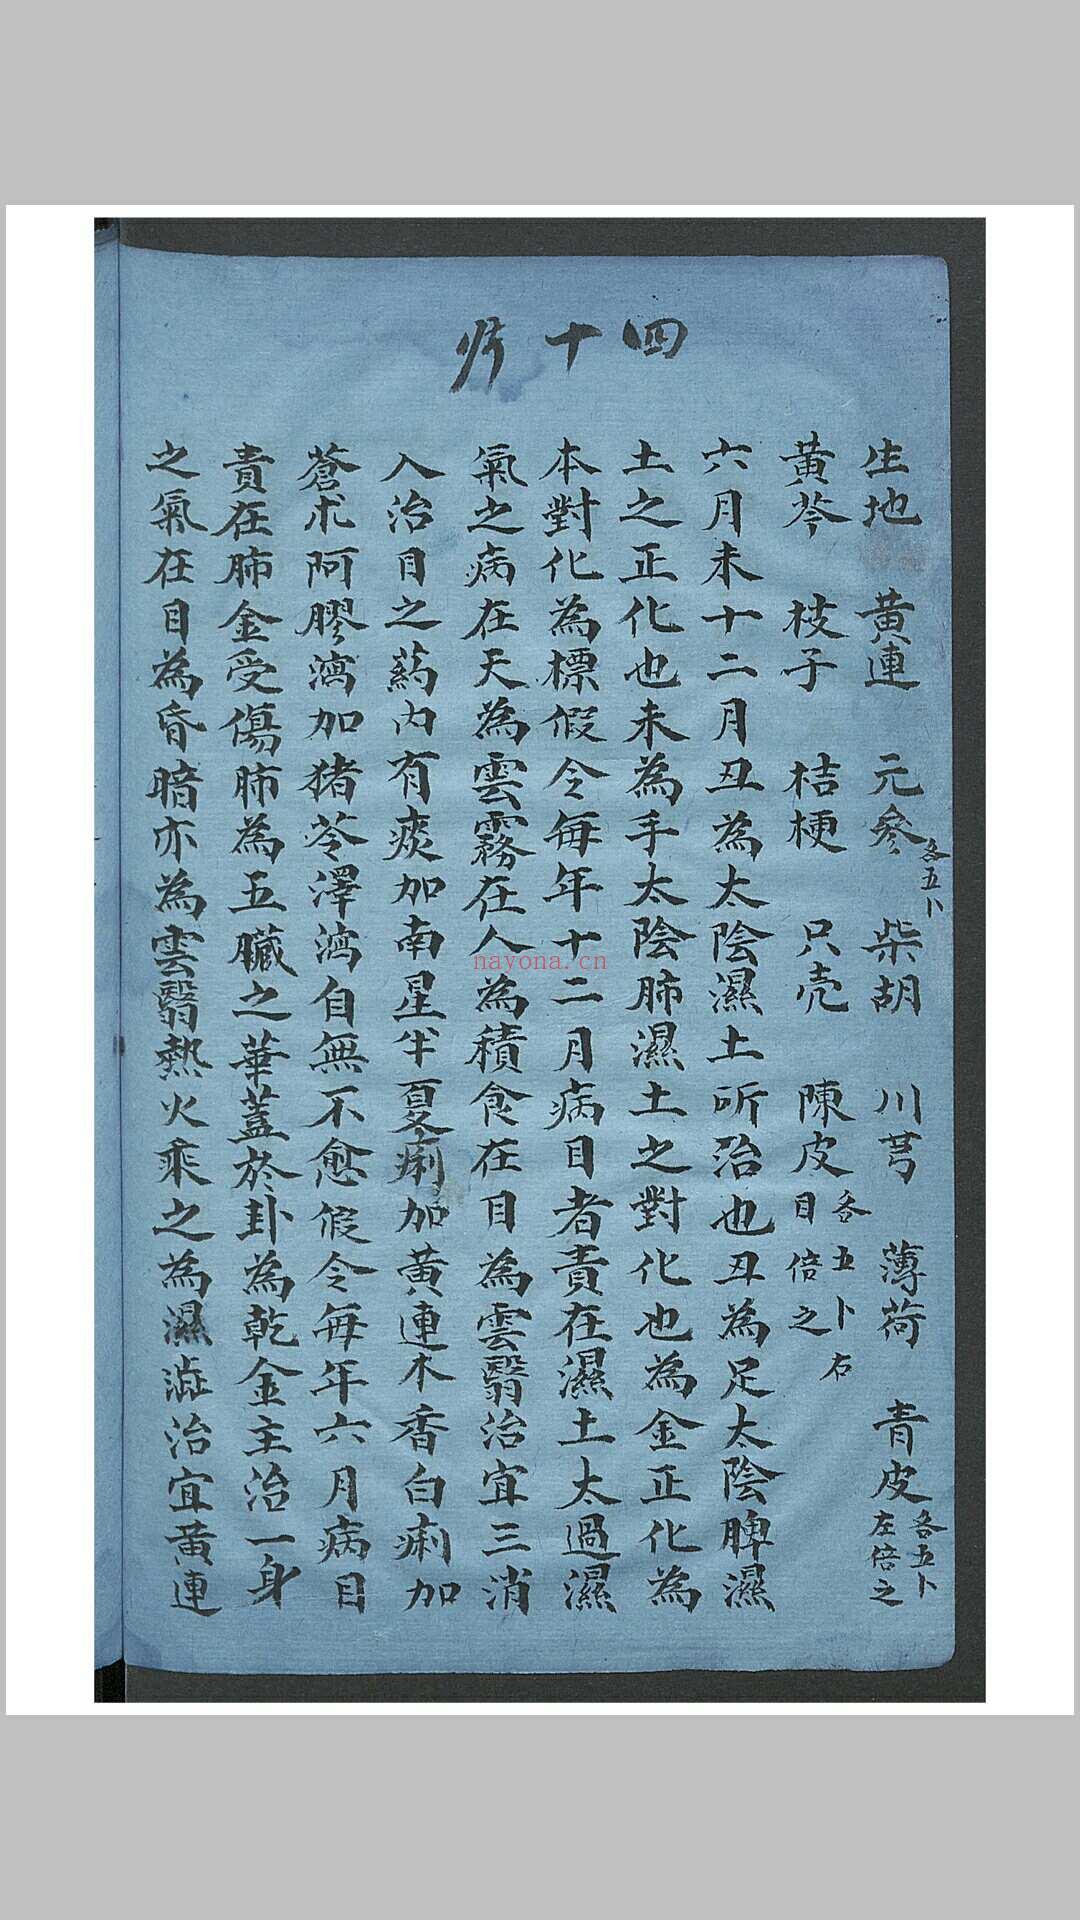 四十
生地 黄連 元參各五卜 柴胡 川芎 薄荷 青皮各五卜左倍之
黄芩 枝子 桔梗 只壳 陳皮各五卜右目倍之
六月未十二月丑為太陰濕土所治也丑為足太陰脾濕
土之正化也未為手太陰肺濕土之對化也為金正化為
本對化為標假令每年十二月病目者責在濕土太過濕
氣之病在天為雲霧在人為積食在目為雲翳治宜三消
入治目之藥内有痰加南星半夏痢加黄連木香白痢加
蒼朮阿膠瀉加猪苓澤瀉自無不愈假令每年六月病目
責在肺金受傷肺為五臟之華蓋於卦為乾金主治一身
之氣在目為昏暗亦為雲翳熱火乘之為濕澁治宜黄連
nayona.cn